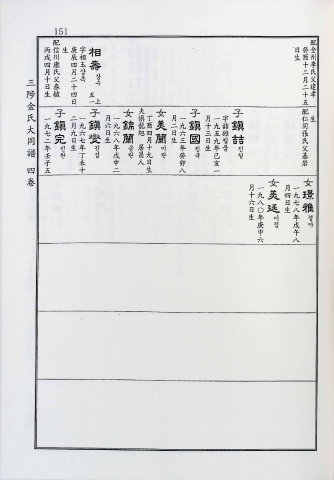 151
配全州李氏父建孝
癸酉十二月二十五
日生
相壽 상수 上五一
字相玉상옥
庚辰四月二十四日
生
配信川康氏父泰植
丙戌四月十日生
配仁同張氏父基岩
生
子鎭喆 진철
字喆용철
一九五九年己亥一
月十三日生
子鎭國 진국
一九六三年癸卯八
月二日生
女美蘭 미란
丁酉四月十九日生
夫 居昌人
女錦蘭 금란
一九六八年戊申二
月六日生
子鎭燮 진섭
一九六七年丁未十
二月九日生
子鎭完 진완
一九七二年壬子五
女璟雅 경아
一九七八年戊午八
月四日生
女美廷 미정
一九八〇年庚申六
月十六日生
三陟金氏大同譜 四卷